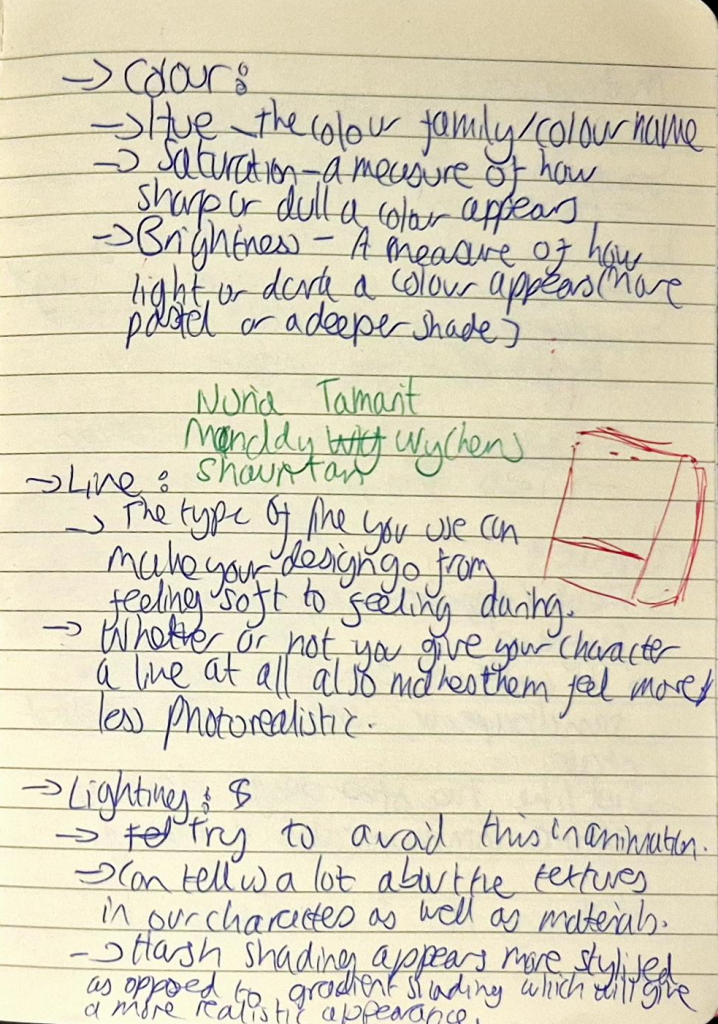 → Colour:
→ Hue - the colour family/colour name
→ Saturation - a measure of how
sharp or dull a colour appears
→ Brightness - A measure of how
light or dark a colour appears (more
pastel or a deeper shade)
Nuria Tamarit
Manddy Wychens
Shaun Tan
→ Line:
→ The type of line you use can
make your design go from
feeling soft to feeling daring.
→ Whether or not you give your character
a line at all also makes them feel more/
less photorealistic.
→ Lighting:
→ Try to avoid this in animation.
→ Can tell us a lot about the textures
in our characters as well as materials.
→ Harsh shading appears more stylised
as opposed to gradient shading which will give
a more realistic appearance.